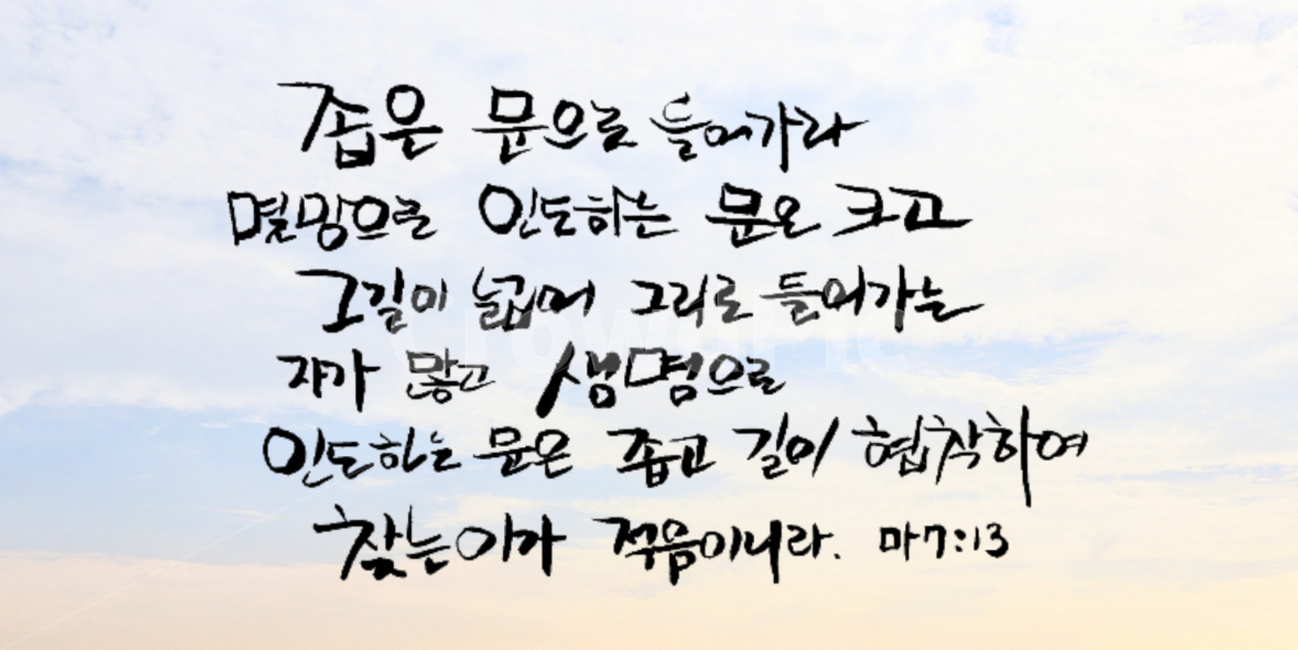 좁은 문으로 들어가라
멸망으로 인도하는 문은 크고
그길이 넓어 그리로 들어가는
자가 많고 생명으로
인도하는 문은 좁고 길이 협착하여
찾는이가 적음이니라. 마7:13
crowdpic